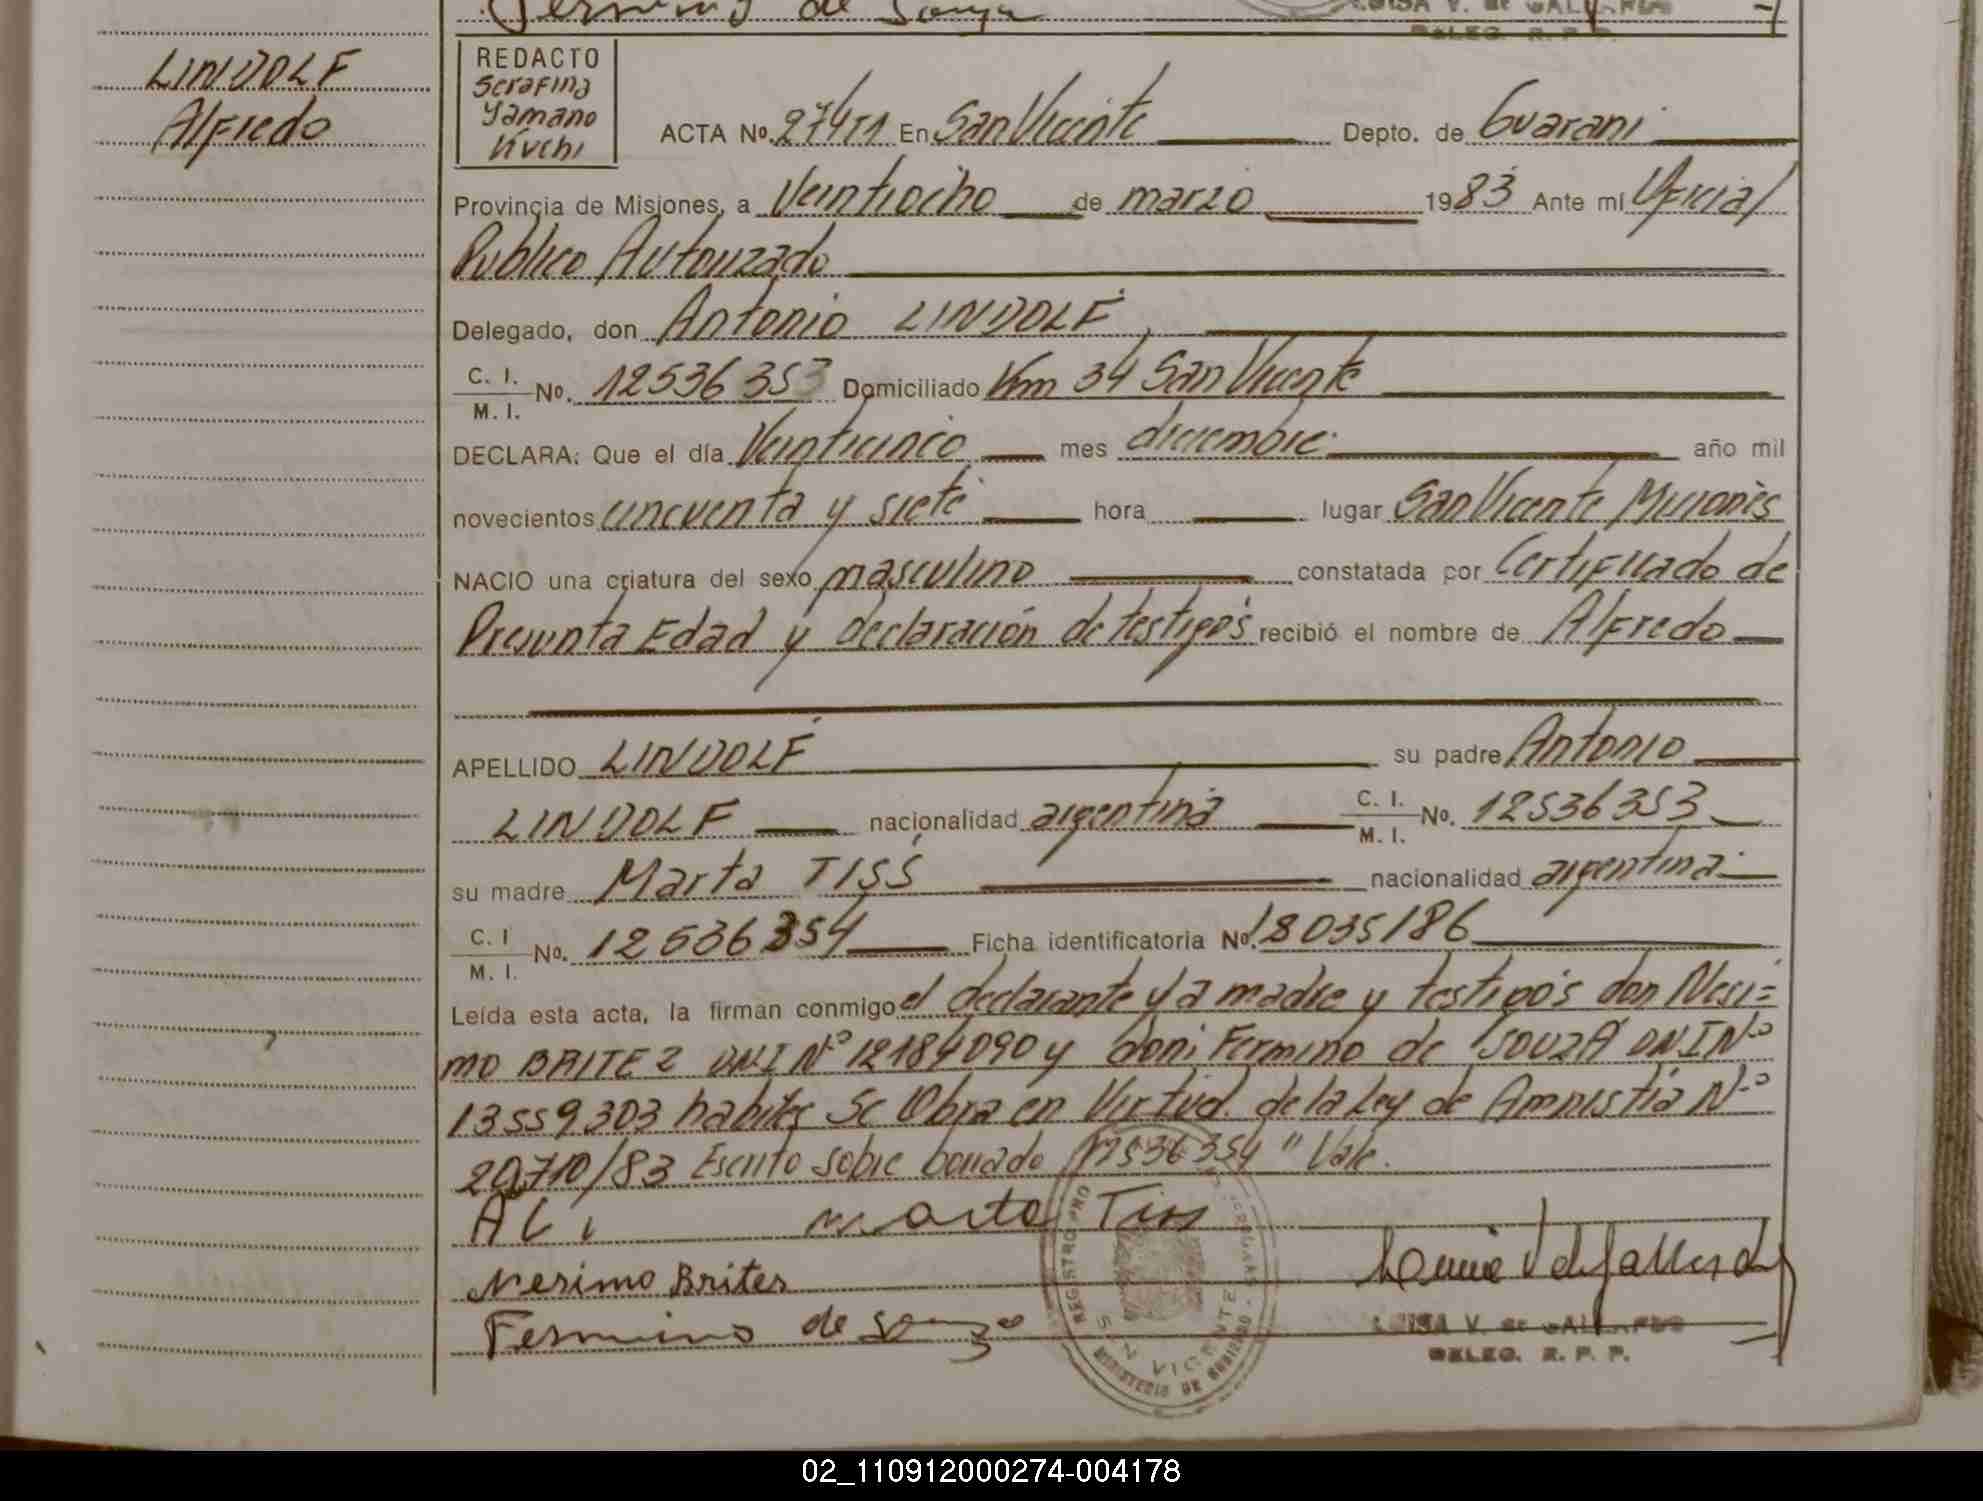 Fermino de Souza
LUISA V. de GALLARDO
DELEG. R. P. P.
LINDOLF
Alfredo
REDACTO
Serafina
Yamano
Kuchi
ACTA No. 27411 En San Vicente Depto. de Guarani
Provincia de Misiones, a Veintiocho de marzo 1983 Ante mí Oficial
Publico Autorizado
Delegado, don Antonio LINDOLF,
C. I. / M. I. No. 12536353 Domiciliado Km 34 San Vicente
DECLARA: Que el día Veinticinco mes diciembre año mil
novecientos cincuenta y siete hora lugar San Vicente Misiones
NACIO una criatura del sexo masculino constatada por Certificado de
Presunta Edad y declaración de testigos recibió el nombre de Alfredo
APELLIDO LINDOLF su padre Antonio
LINDOLF nacionalidad argentina C. I. / M. I. No. 12536353
su madre Marta TISS nacionalidad argentina
C. I / M. I. No. 12536354 Ficha identificatoria No. 18035186
Leída esta acta, la firman conmigo el declarante y la madre y testigos don Nesi=
mo BRITEZ DNI Nº 12184090 y don Fermino de SOUZA DNI Nº
13559303 habiles Se Obra en Virtud de la Ley de Amnistia Nº
20710/83 Escrito sobre borrado "12536354" Vale.
A L i Marta Tiss
Nesimo Brites
Fermino de Souza
REGISTRO PROV. DE LAS PERSONAS
SAN VICENTE
MINISTERIO DE GOBIERNO
LUISA V. de GALLARDO
DELEG. R. P. P.
02_110912000274-004178